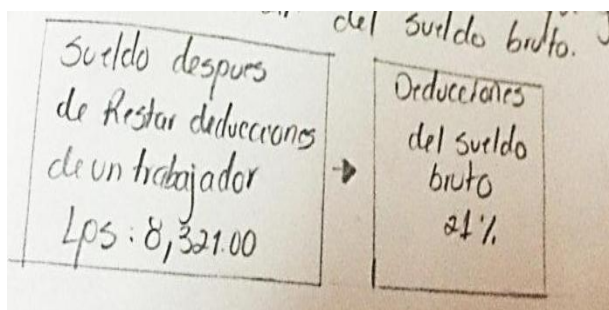 del sueldo bruto.
Sueldo despues
de Restar deducciones
de un trabajador
Lps: 8,321.00
Deducciones
del sueldo
bruto
21%